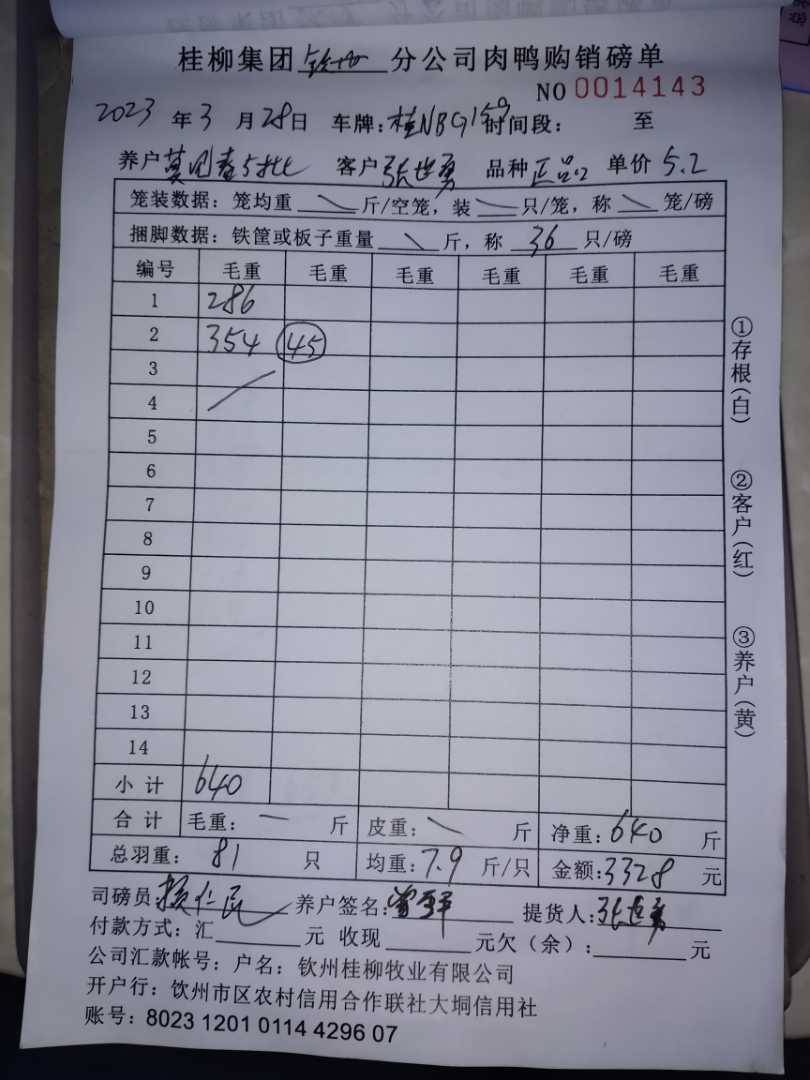 桂柳集团 钦州 分公司肉鸭购销磅单
NO 0014143
2023 年 3 月 28 日 车牌: 桂NBG159 时间段: 至
养户 5批 客户 张世勇 品种 正品2 单价 5.2
笼装数据: 笼均重 斤/空笼, 装 只/笼, 称 笼/磅
捆脚数据: 铁筐或板子重量 斤, 称 36 只/磅
编号 毛重 毛重 毛重 毛重 毛重 毛重
1 286
2 354 45
3
4
5
6
7
8
9
10
11
12
13
14
小 计 640
合 计 毛重: 一 斤 皮重: 斤 净重: 640 斤
总羽重: 81 只 均重: 7.9 斤/只 金额: 3328 元
司磅员: 养户签名: 提货人: 张世勇
付款方式: 汇 元 收现 元欠（余）: 元
公司汇款帐号: 户名: 钦州桂柳牧业有限公司
开户行: 钦州市区农村信用合作联社大垌信用社
账号: 8023 1201 0114 4296 07
①存根(白)
②客户(红)
③养户(黄)